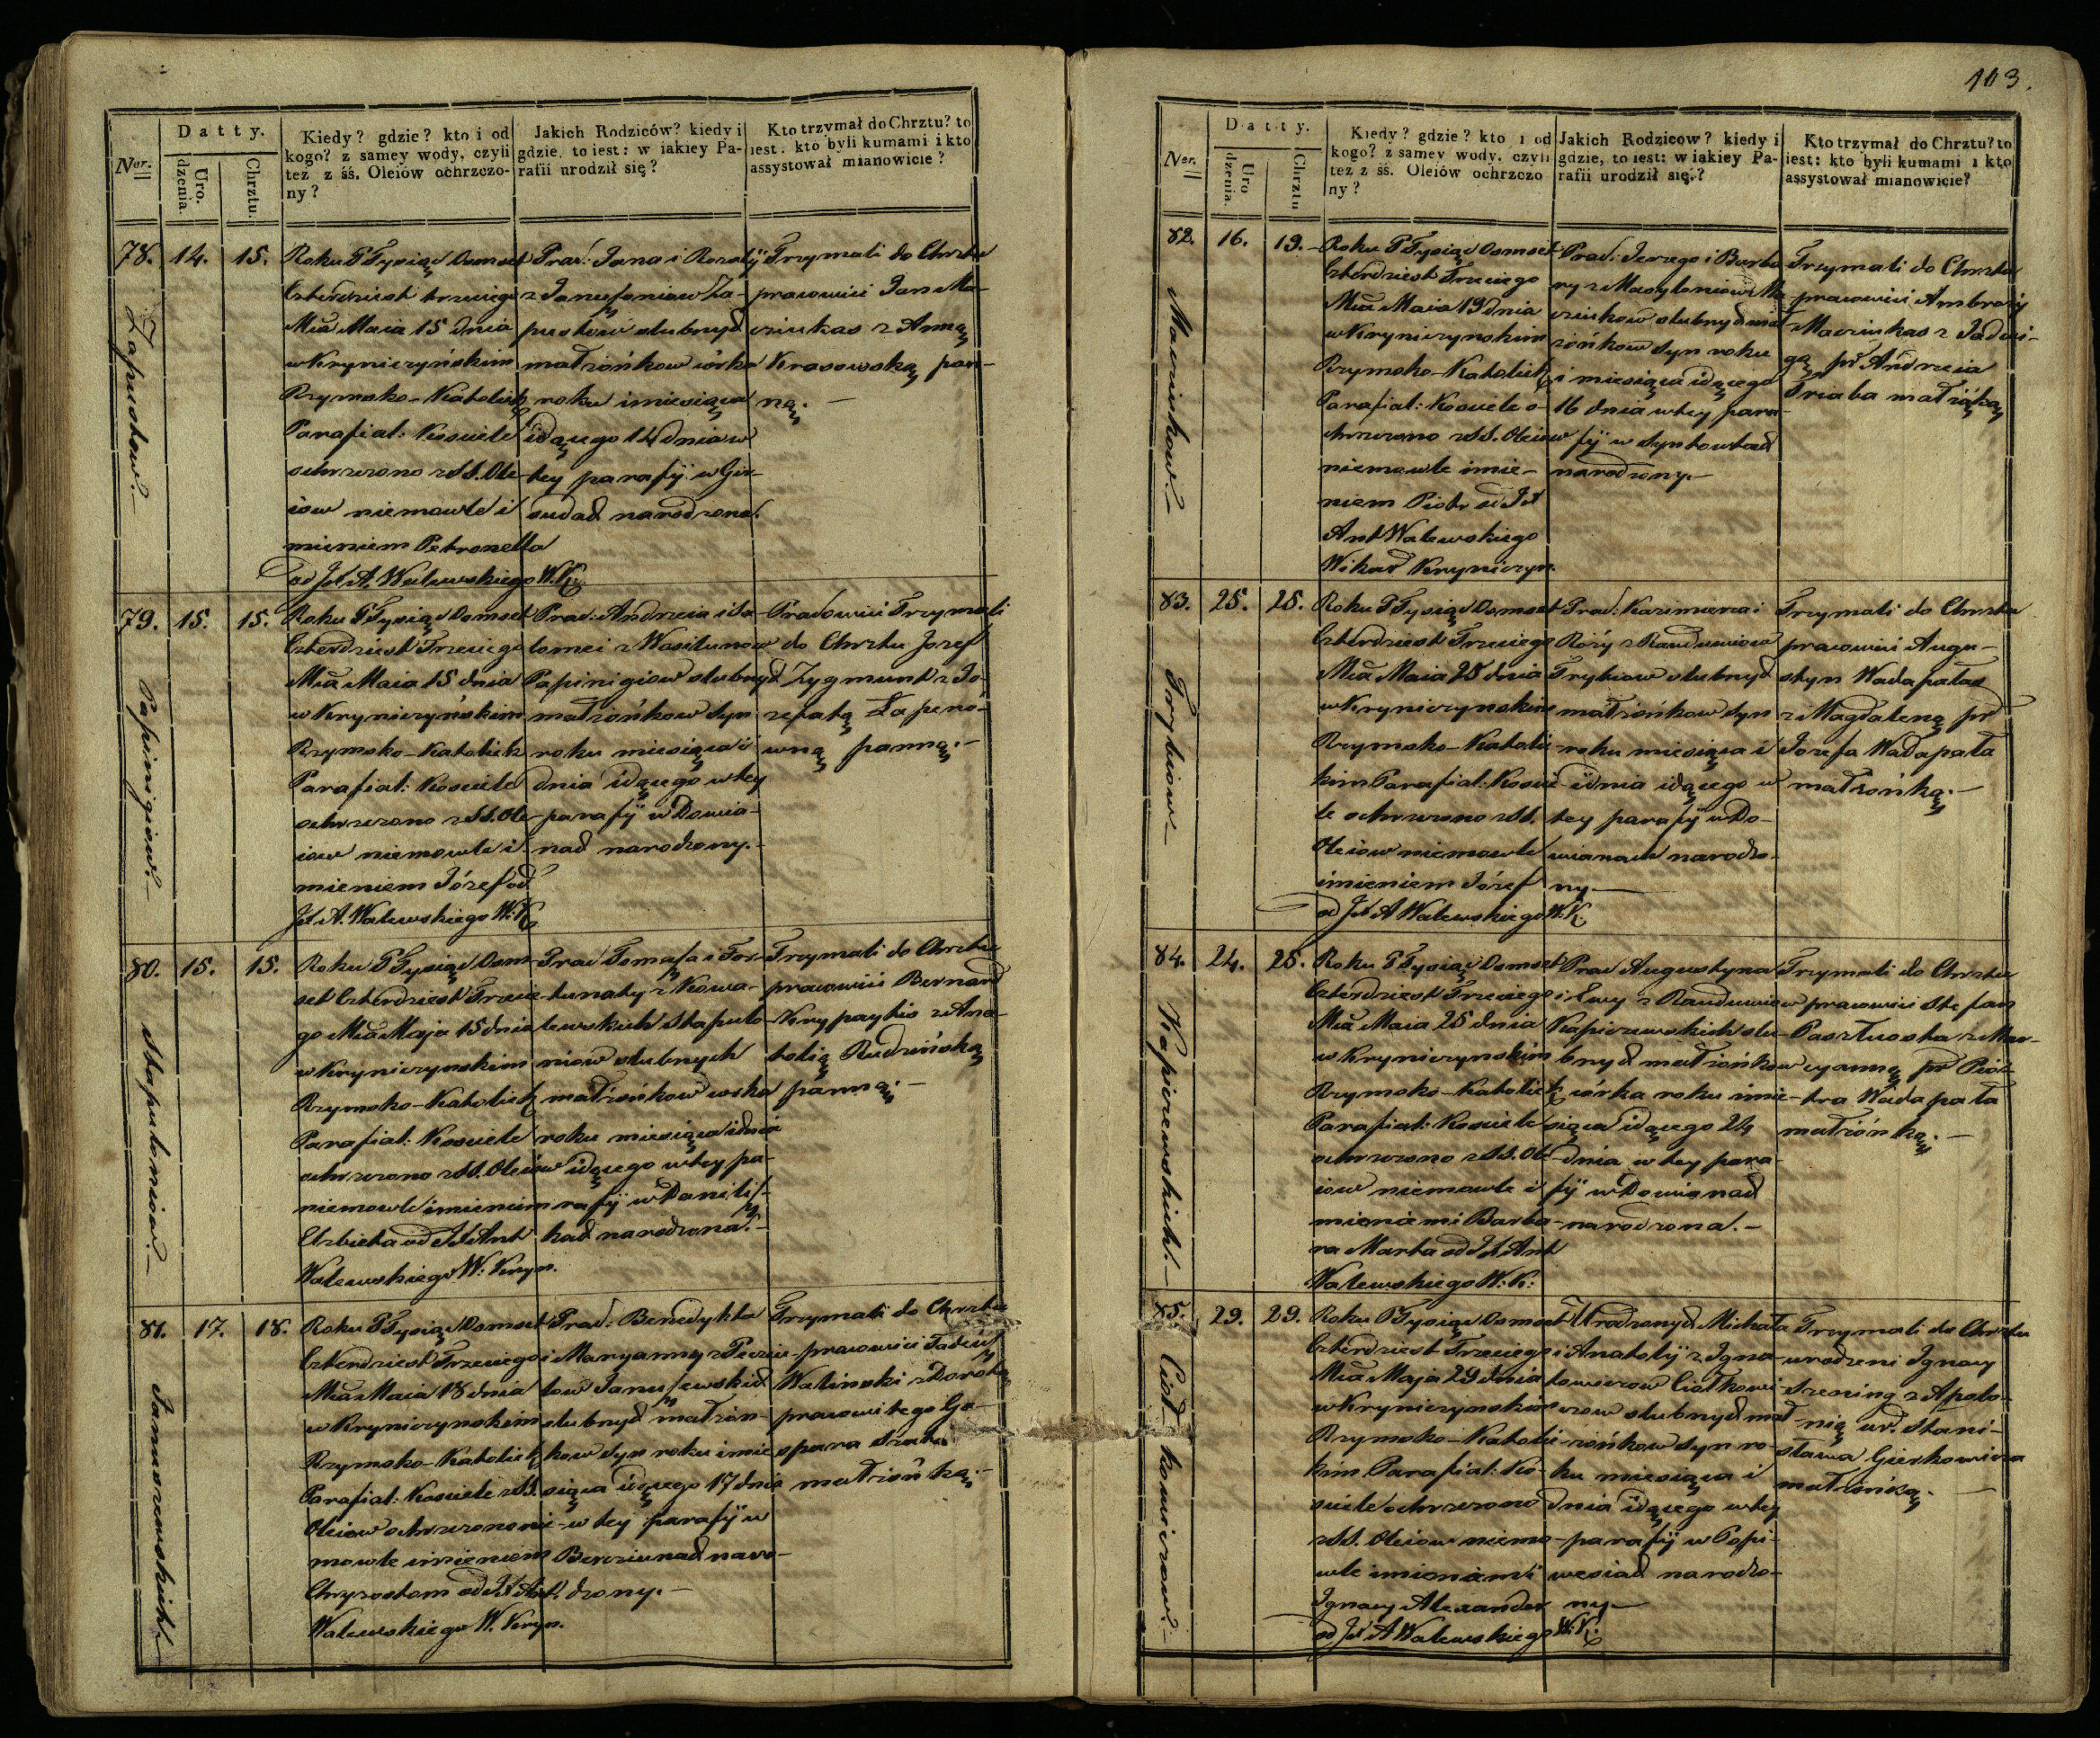 103.
Ner.
Datty.
Uro. dzenia.
Chrztu.
Kiedy? gdzie? kto i od
kogo? z samey wody, czyli
też z śś. Oleiów ochrzczo-
ny?
Jakich Rodziców? kiedy i
gdzie, to iest: w iakiey Pa-
rafii urodził się?
Kto trzymał do Chrztu? to
iest: kto byli kumami i kto
assystował mianowicie?
78. 14. 15.
Zapustow.
Roku P Tysiąc Osmset
Czterdziest trzeciego
Mca Maia 15 dnia
w Kryniczyńskim
Rzymsko-Katolick
Parafial: Kosciele
ochrzczono z SS. Ole-
iow niemowle i
mieniem Petronella
od Jx A. Walewskiego W.K.
Prac: Jana i Rozalÿ
z Januszaniow Za-
pustow slubnych
małżonkow córka
roku i miesiąca
idącego 14 dnia w
tey parafÿ w Gir-
sudach narodzona.
Trzymali do Chrztu
pracowici Jan Ma-
ciukas z Anną
Krasowską pan-
ną.
79. 15. 15.
Papinigiow.
Roku P Tysiąc Osmset
Czterdziest Trzeciego
Mca Maia 15 dnia
w Kryniczyńskim
Rzymsko-Katolick
Parafial: Kosciele
ochrzczono z SS. Ole-
iow niemowle i
mieniem Józef od
Jx A. Walewskiego W.K.
Prac: Andrzeia i Sa-
lomei z Wasilunow
Papinigiow slubnych
małżonkow syn
roku miesiąca i
dnia idącego w tey
parafÿ w Dowia-
nach narodzony.
Pracowici Trzymali
do Chrztu Jozef
Zygmunt z Jo-
zefatą Łapeno-
wną panną.
80. 15. 15.
Staputoniow.
Roku P Tysiąc Osm-
set Czterdziest Trzecie-
go Mca Maja 15 dnia
w Krynicznyskim
Rzymsko-Katolick
Parafial: Kosciele
ochrzczono z SS. Oleiow
niemowle imieniem
Elzbieta od Jx Ant
Walewskiego W: Kryn.
Prac Tomasza i For-
tunaty z Kowa-
lewskich Staputo-
niow slubnych
małżonkow corka
roku miesiąca i dnia
idącego w tey pa-
rafÿ w Danilisz-
kach narodzona.
Trzymali do Chrztu
pracowici Bernard
Krypaytis z Ana-
tolią Rudzińską
panną.
81. 17. 18.
Januszewskich
Roku P Tysiąc Osmset
Czterdziest Trzeciego
Mca Maia 18 dnia
w Krynicznyskim
Rzymsko-Katolick
Parafial: Kosciele z SS.
Oleiow ochrzczono nie-
mowle imieniem
Chryzostom od Jx Ant
Walewskiego W. Kryn.
Prac: Benedykta
i Maryanny z Peciu-
low Januszewskich
slubnych małżon-
kow syn roku i mie-
siąca idącego 17 dnia
w tey parafÿ w
Berziunach naro-
dzony.
Trzymali do Chrztu
pracowici Tadeusz
Walinski z Dorotą
pracowitego Ga-
spara
małżonką.
82. 16. 19.
Maciukow
Roku P Tysiąc Osmset
Czterdziest Trzeciego
Mca Maia 19 dnia
w Krynicznyskim
Rzymsko-Katolick
Parafial: Kosciele o-
chrzczono z SS. Oleiow
niemowle imie-
niem Piotr od Jx
Ant Walewskiego
Wikar Krynicznyn.
Prac: Jerzego i Barba-
ry z Masyloniow Ma-
ciukow slubnych mał
żonkow syn roku
i miesiąca idącego
16 dnia w tey para-
fÿ w Syntowtach
narodzony.
Trzymali do Chrztu
pracowici Ambroży
Maciukas z Jadwi-
gą pr Andrzeia
Driaba małżonką
83. 25. 25.
Trybiow
Roku P Tysiąc Osmset
Czterdziest Trzeciego
Mca Maia 25 dnia
w Krynicznyskim
Rzymsko-Katolic-
kim Parafial: Kosci-
le ochrzczono z SS.
Oleiow niemowle
imieniem Józef
od Jx A Walewskiego W.K.
Prac: Kazimierza i
Róży z Randumiow
Trybiow slubnych
małżonkow syn
roku miesiąca i
dnia idącego w
tey parafÿ w Do-
wianach narodzo-
ny.
Trzymali do Chrztu
pracowici Augu-
styn Wadapałas
z Magdaleną pr
Jozefa Wadapała
małżonką.
84. 24. 25.
Kopiczewskich.
Roku P Tysiąc Osmset
Czterdziest Trzeciego
Mca Maia 25 dnia
w Krynicznyskim
Rzymsko-Katolick
Parafial: Kosciele
ochrzczono z SS. Ole-
iow niemowle i
mionami Barba-
ra Marta od Jx Ant
Walewskiego W: K:
Prac Augustyna
i Ewy z Randumiow
Kopiczewskich slu-
bnych małżonkow
córka roku i mie-
siąca idącego 24
dnia w tey para-
fÿ w Dowianach
narodzona.
Trzymali do Chrztu
pracowici Stefan
Pasztuosta z Mar-
cyanną pr Pio-
tra Wadapała
małżonką.
85. 29. 29.
Ciołkowiczow.
Roku P Tysiąc Osmset
Czterdziest Trzeciego
Mca Maja 29 dnia
w Krynicznyskim
Rzymsko-Katolic-
kim Parafial: Ko-
sciele ochrzczono
z SS. Oleiow niemo-
wle imionami
Ignacy Alexander
od Jx A Walewskiego W.K.
Urodzonych Michała
i Anatolÿ z Igna-
towiczow Ciołkowi-
czow slubnych mał-
żonkow syn ro-
ku miesiąca i
dnia idącego w tey
parafÿ w Popi-
wesiach narodzo-
ny.
Trzymali do Chrztu
urodzeni Ignacy
Srzening z Apolo-
nią ur. Stani-
sława Gierkowicza
małżonką.